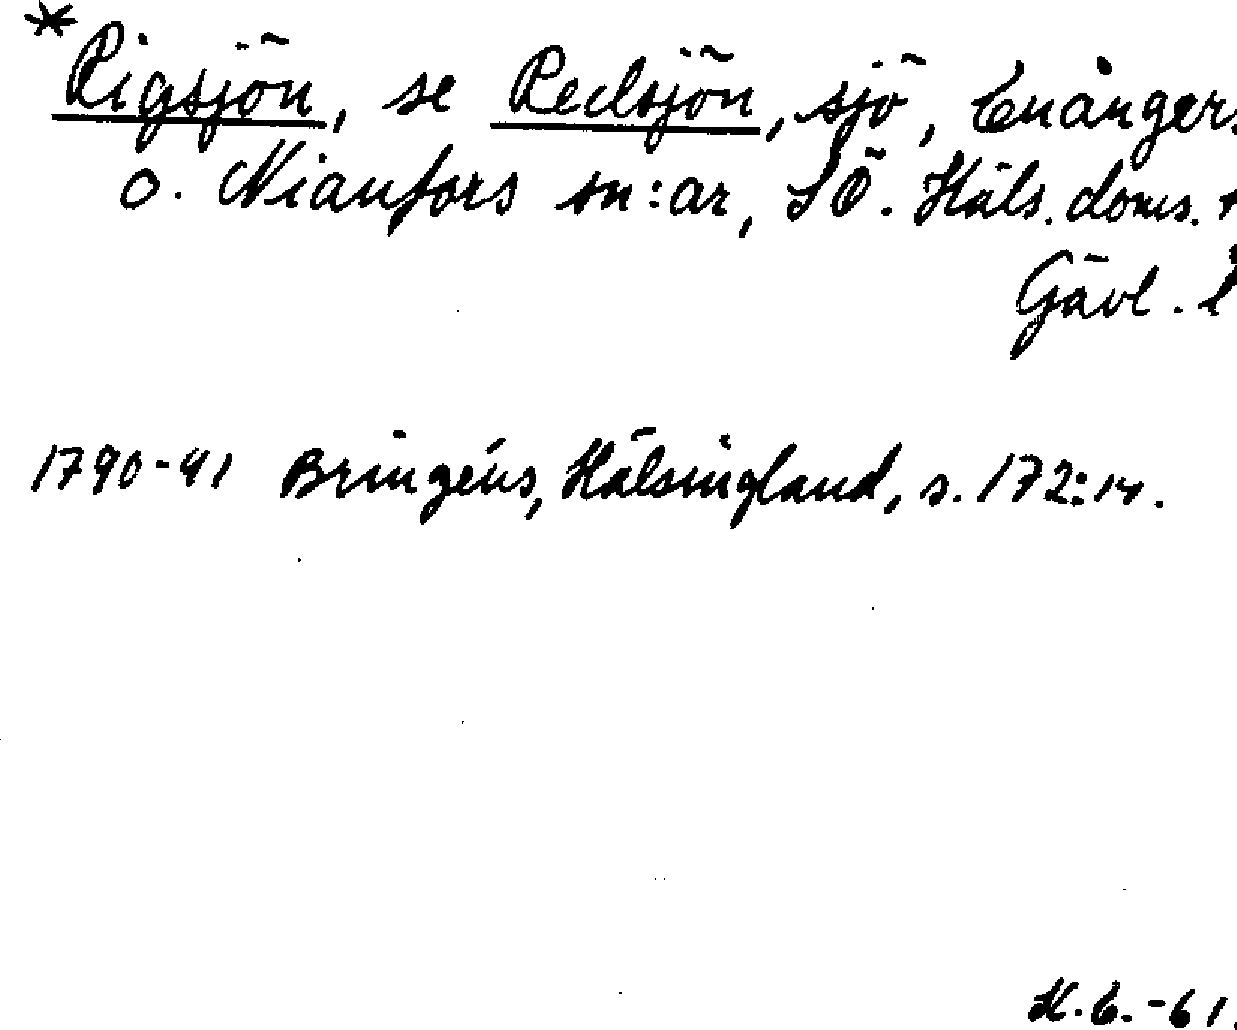 *Rigsjön, se Redsjön, sjö, Enånger
o. Nianfors sn:ar, SÖ. Häls. doms.
Gävl. l
1790-91 Bringéus, Hälsingland, s. 172:14.
K.E.-61.